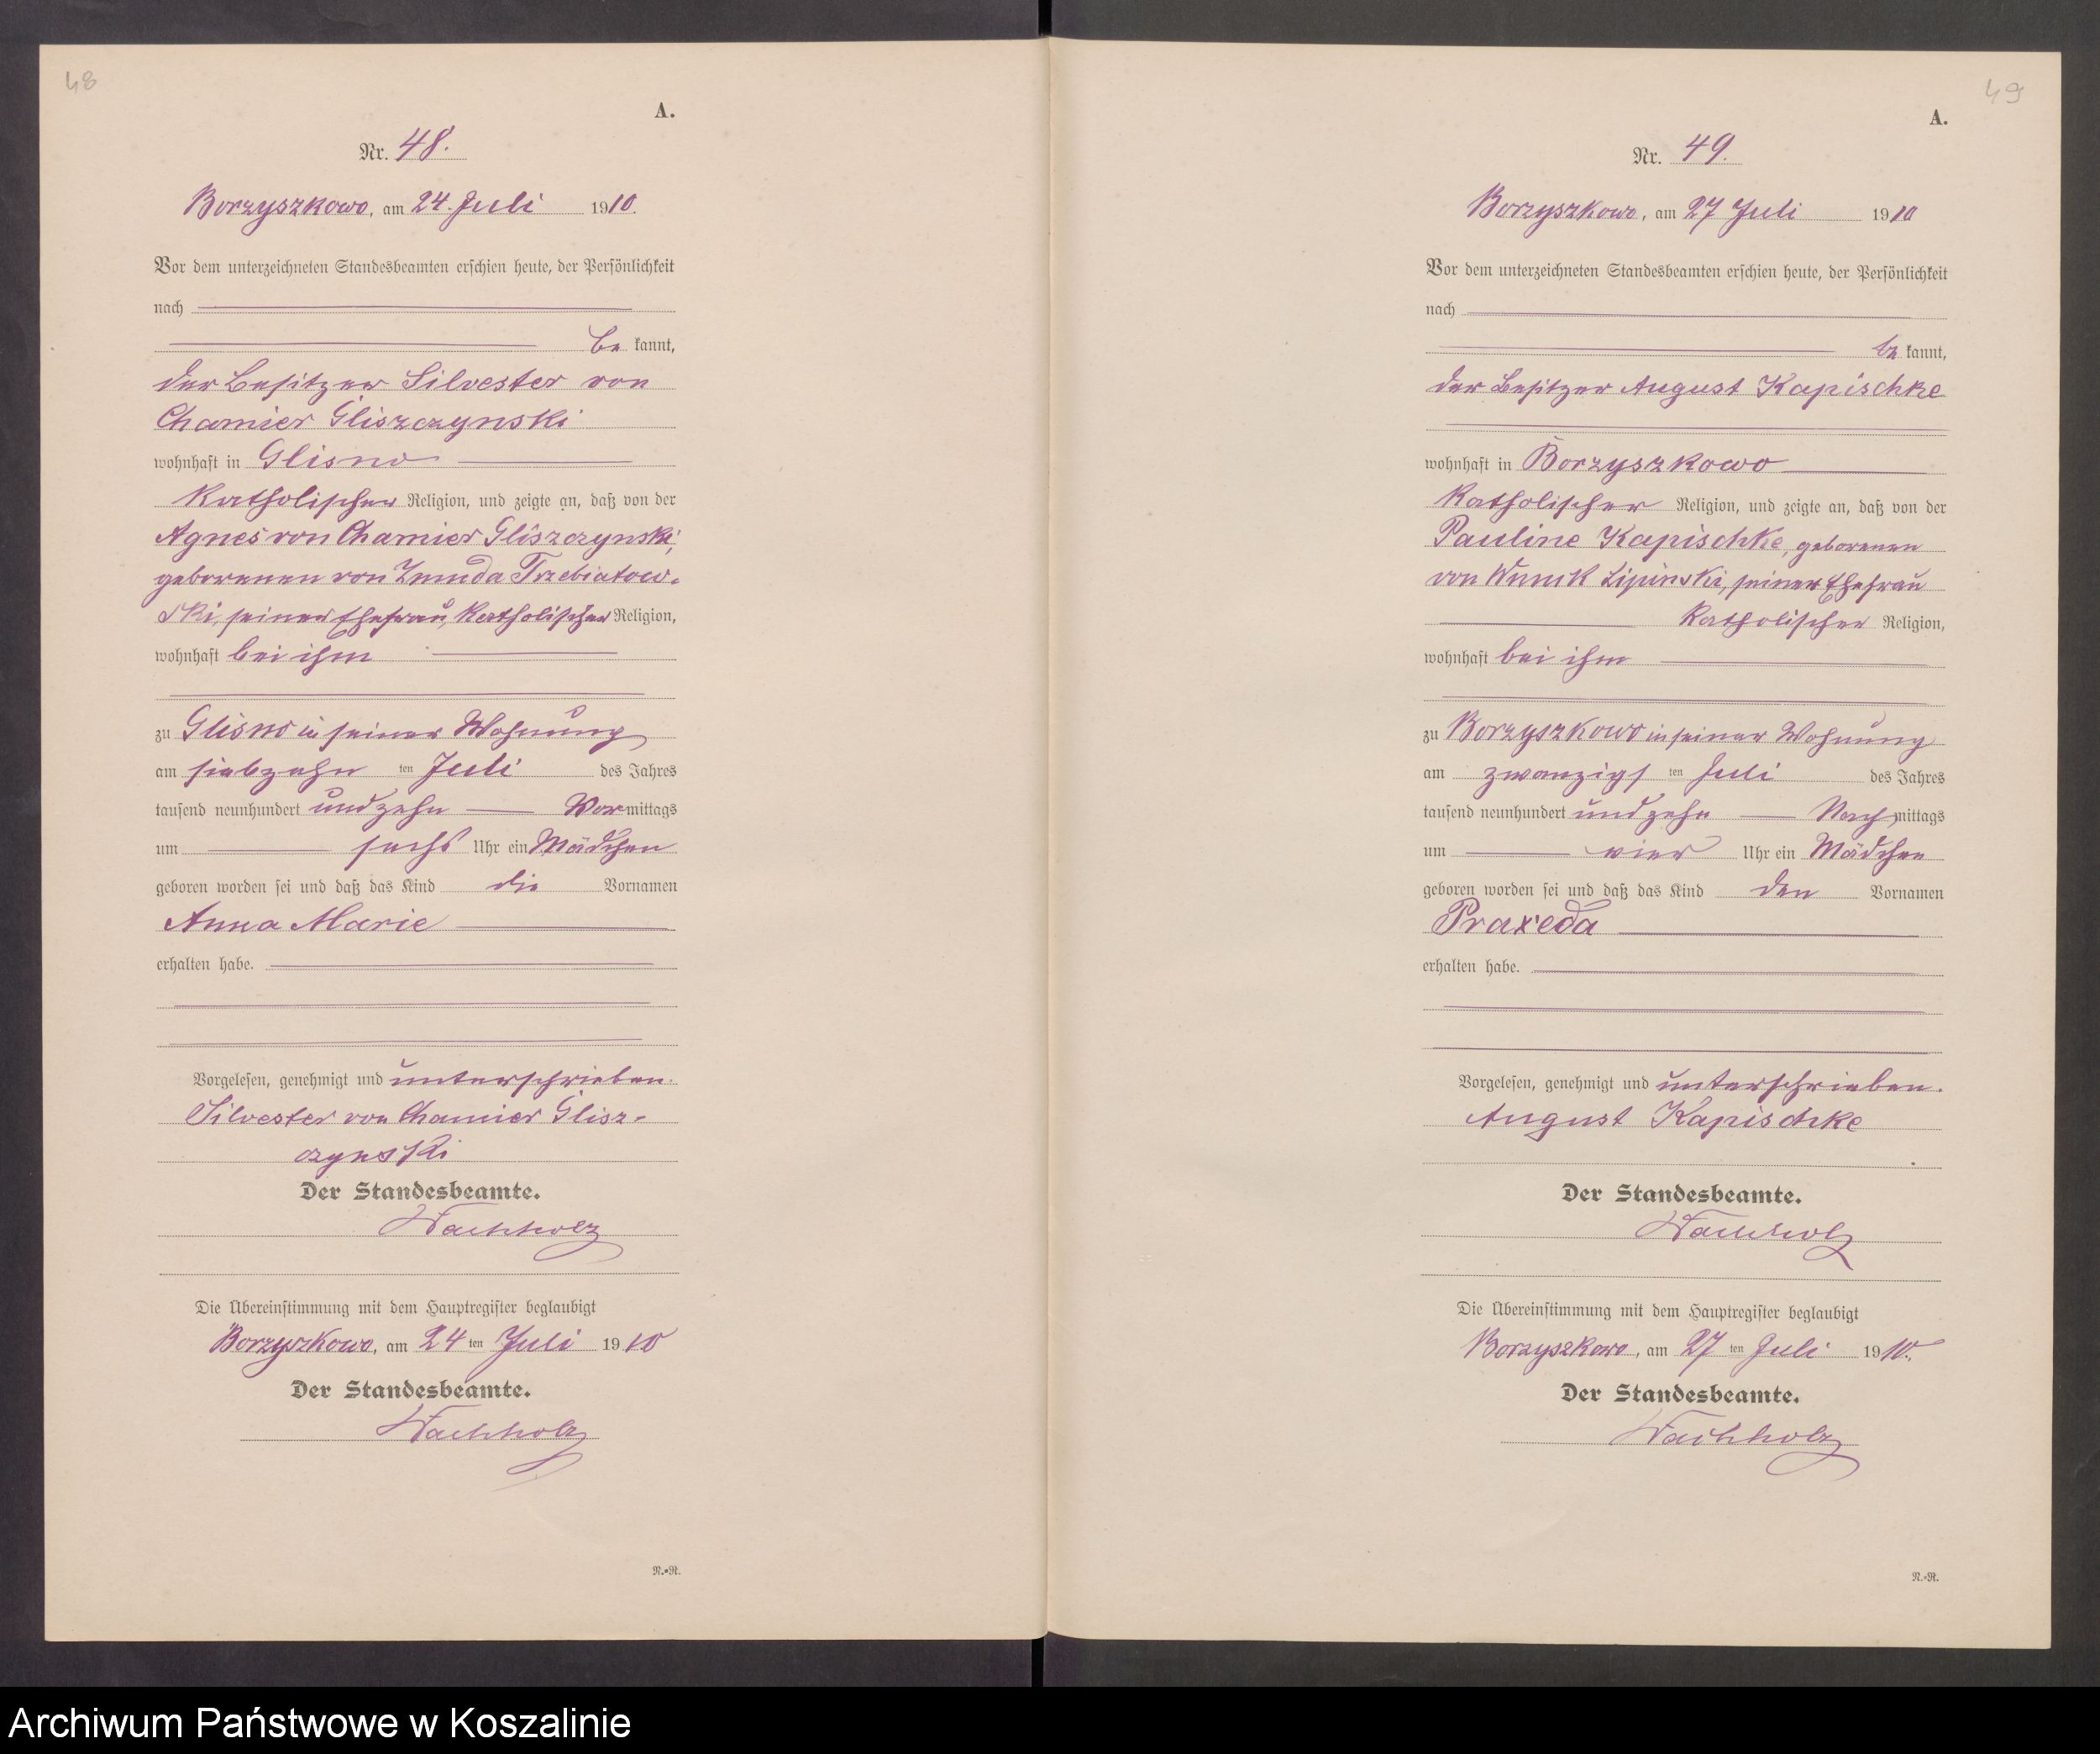 48
A.
Nr. 48.
Borzyszkowo, am 24. Juli 1910.
Vor dem unterzeichneten Standesbeamten erschien heute, der Persönlichkeit
nach
be kannt,
der Besitzer Silvester von
Chamier Gliszczynski
wohnhaft in Glisno
katholischer Religion, und zeigte an, daß von der
Agnes von Chamier Gliszczynski,
geborenen von Zmuda Trzebiatow-
ski, seiner Ehefrau, katholischer Religion,
wohnhaft bei ihm
zu Glisno in seiner Wohnung
am siebzehn ten Juli des Jahres
tausend neunhundert und zehn Vormittags
um sechs Uhr ein Mädchen
geboren worden sei und daß das Kind die Vornamen
Anna Marie
erhalten habe.
Vorgelesen, genehmigt und unterschrieben.
Silvester von Chamier Glisz-
czynski
Der Standesbeamte.
Wachholz
Die Übereinstimmung mit dem Hauptregister beglaubigt
Borzyszkowo, am 24 ten Juli 1910
Der Standesbeamte.
Wachholz
N.=R.
49
A.
Nr. 49.
Borzyszkowo, am 27 Juli 1910
Vor dem unterzeichneten Standesbeamten erschien heute, der Persönlichkeit
nach
be kannt,
der Besitzer August Kapischke
wohnhaft in Borzyszkowo
katholischer Religion, und zeigte an, daß von der
Pauline Kapischke, geborenen
von Wnuk Lipinski, seiner Ehefrau
katholischer Religion,
wohnhaft bei ihm
zu Borzyszkowo in seiner Wohnung
am zwanzigs ten Juli des Jahres
tausend neunhundert und zehn Nachmittags
um vier Uhr ein Mädchen
geboren worden sei und daß das Kind den Vornamen
Praxeda
erhalten habe.
Vorgelesen, genehmigt und unterschrieben.
August Kapischke
Der Standesbeamte.
Wachholz
Die Übereinstimmung mit dem Hauptregister beglaubigt
Borzyszkowo, am 27 ten Juli 1910.
Der Standesbeamte.
Wachholz
N.=R.
Archiwum Państwowe w Koszalinie